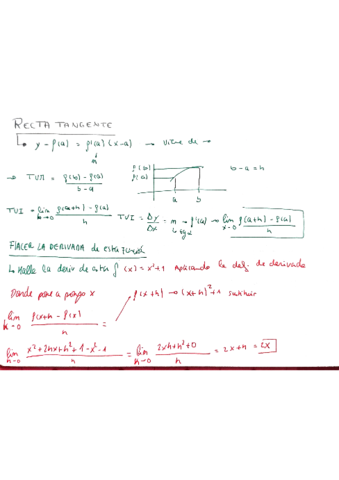 RECTA TANGENTE
y - f(a) = f'(a) (x-a) → viene de →
m
→ TVM = f(b) - f(a) / b - a
f(b)
f(a)
a b
b - a = h
TVI = lim h→0 f(a+h) - f(a) / h TVI = Δy / Δx = m → f'(a) → lim x→0 f(a+h) - f(a) / h
↳ tg α
HACER LA DERIVADA de esta función
↳ Halla la deriv de esta f(x) = x²+1 aplicando la def. de derivada
Donde pone a pongo x
f(x+h) → (x+h)²+1 sustituir
lim h→0 f(x+h - f(x) / h =
lim h→0 x²+2hx+h²+1-x²-1 / h = lim h→0 2xh+h²+0 / h = 2x+h = 2x